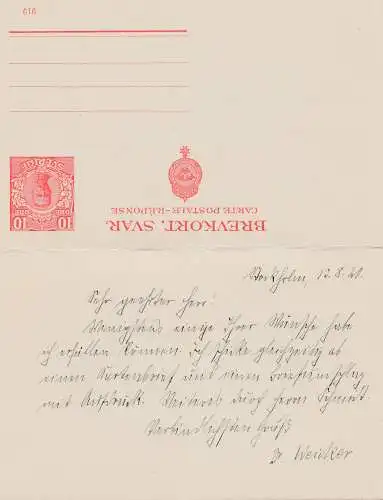 616
SVERIGE
10 ÖRE ÖRE 10
BREVKORT. SVAR.
CARTE POSTALE-RÉPONSE
Stockholm 12.8.21.
Sehr geehrter Herr!
Wenigstens einige Ihrer Wünsche habe
ich erfüllen können. Ich schicke gleichzeitig ab
einen Kartenbrief und einen Briefumschlag
mit Aufdruck. Weiteres durch Herrn Schmidt.
Verbindlichsten Gruß
Weuker